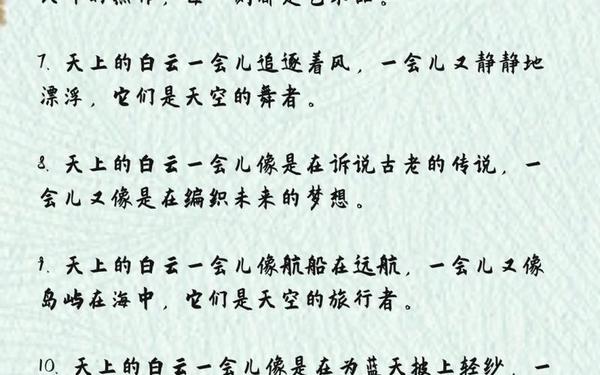 7. 天上的白云一会儿追逐着风，一会儿又静静地
漂浮，它们是天空的舞者。
8. 天上的白云一会儿像是在诉说古老的传说，一
会儿又像是在编织未来的梦想。
9. 天上的白云一会儿像航船在远航，一会儿又像
岛屿在海中，它们是天空的旅行者。
10. 天上的白云一会儿像是在为蓝天披上轻纱，一